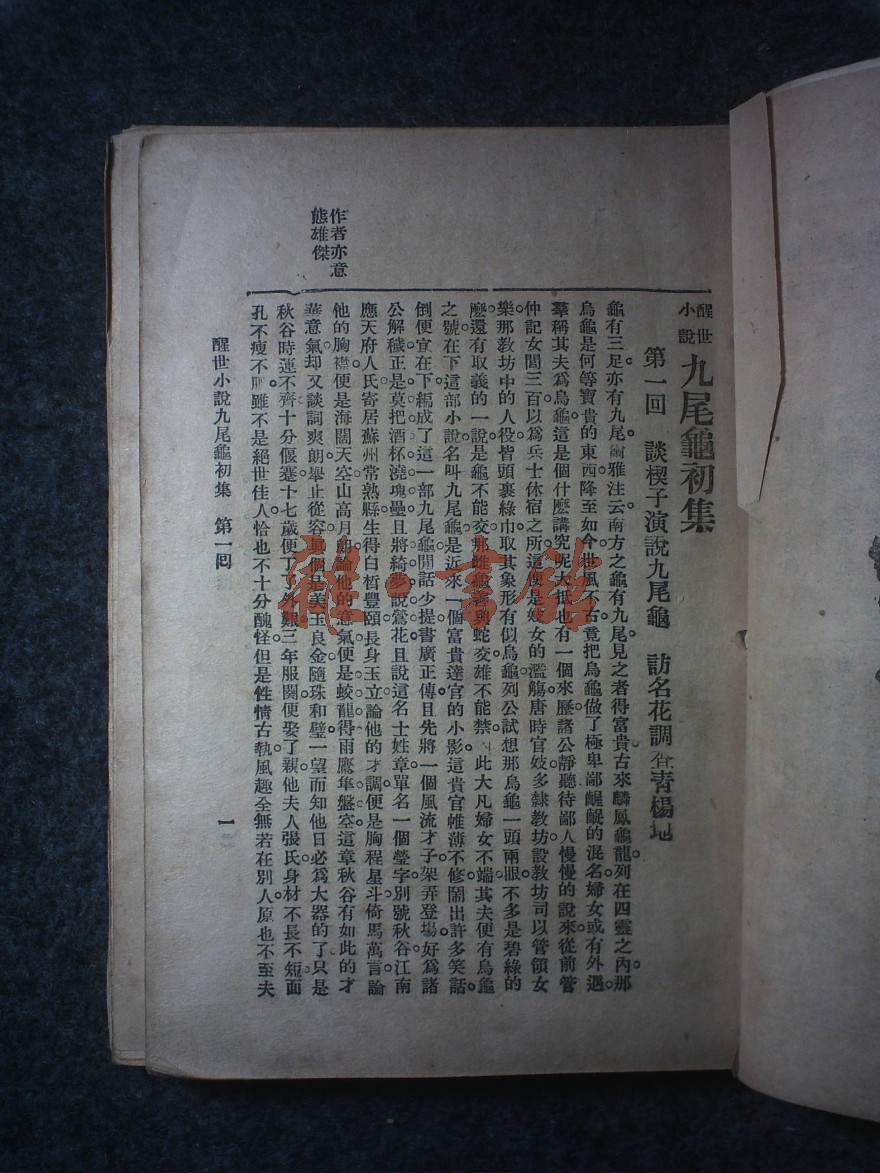 醒世小說 九尾龜初集
第一回 談楔子演說九尾龜 訪名花調查青楊地
龜有三足亦有九尾爾雅注云南方之龜有九尾見之者得富貴古來麟鳳龜龍列在四靈之內那
烏龜是何等寶貴的東西降至如今世風不古竟把烏龜做了極卑鄙齷齪的混名婦女或有外遇
羣稱其夫爲烏龜這是個什麽講究呢大抵也有一個來歷諸公靜聽待鄙人慢慢的說來從前管
仲記女閭三百以爲兵士休宿之所這便是妓女的濫觴唐時官妓多隸教坊設教坊司以管領女
樂那教坊中的人役皆頭裹綠巾取其象形有似烏龜列公試想那烏龜一頭兩眼不多是碧綠的
麽還有取義的一說是龜不能交那雄龜善與蛇交雄不能禁此大凡婦女不端其夫便有烏龜
之號在下這部小說名叫九尾龜是近來一個富貴達官的小影這貴官帷薄不修鬧出許多笑話
倒便宜在下編成了這一部九尾龜閒話少提書廣正傳且先將一個風流才子架弄登場好爲諸
公解穢正是莫把酒杯澆塊壘且將綺夢說鶯花且說這名士姓章單名一個瑩字別號秋谷江南
應天府人氏寄居蘇州常熟縣生得白皙豐頤長身玉立論他的才調便是胸程星斗倚馬萬言論
他的胸襟便是海闊天空山高月朗論他的意氣便是蛟龍得雨鷹隼盤空這章秋谷有如此的才
華意氣却又談詞爽朗舉止從容眞個是美玉良金隨珠和璧一望而知他日必爲大器的了只是
秋谷時運不齊十分偃蹇十七歲便丁了外艱三年服闋便娶了親他夫人張氏身材不長不短面
孔不瘦不肥雖不是絕世佳人恰也不十分醜怪但是性情古執風趣全無若在別人原也不至夫
作者亦意
態雄傑
醒世小說九尾龜初集 第一回
一
雜·書館